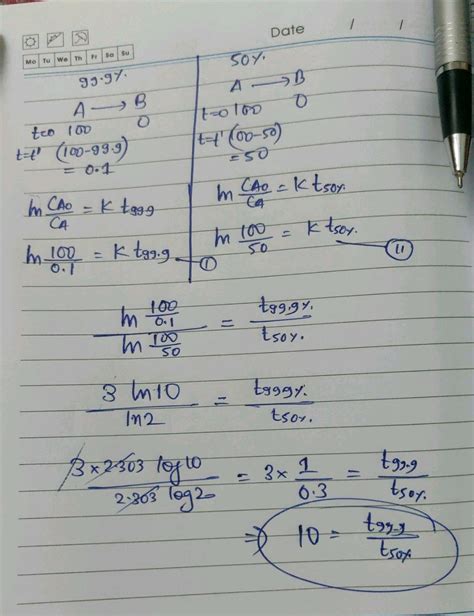 Date / /
Mo Tu We Th Fr Sa Su
99.9%
A → B
t=0 100 0
t=t' (100-99.9)
= 0.1
ln CA0/CA = K t99.9
ln 100/0.1 = K t99.9 — I
50%
A → B
t=0 100 0
t=t' (100-50)
= 50
ln CA0/CA = K t50%
ln 100/50 = K t50% — II
ln 100/0.1 / ln 100/50 = t99.9% / t50%
3 ln10 / ln2 = t999% / t50%
3 × 2.303 log10 / 2.303 log2 = 3 × 1/0.3 = t99.9 / t50%
⇒ 10 = t99.9 / t50%